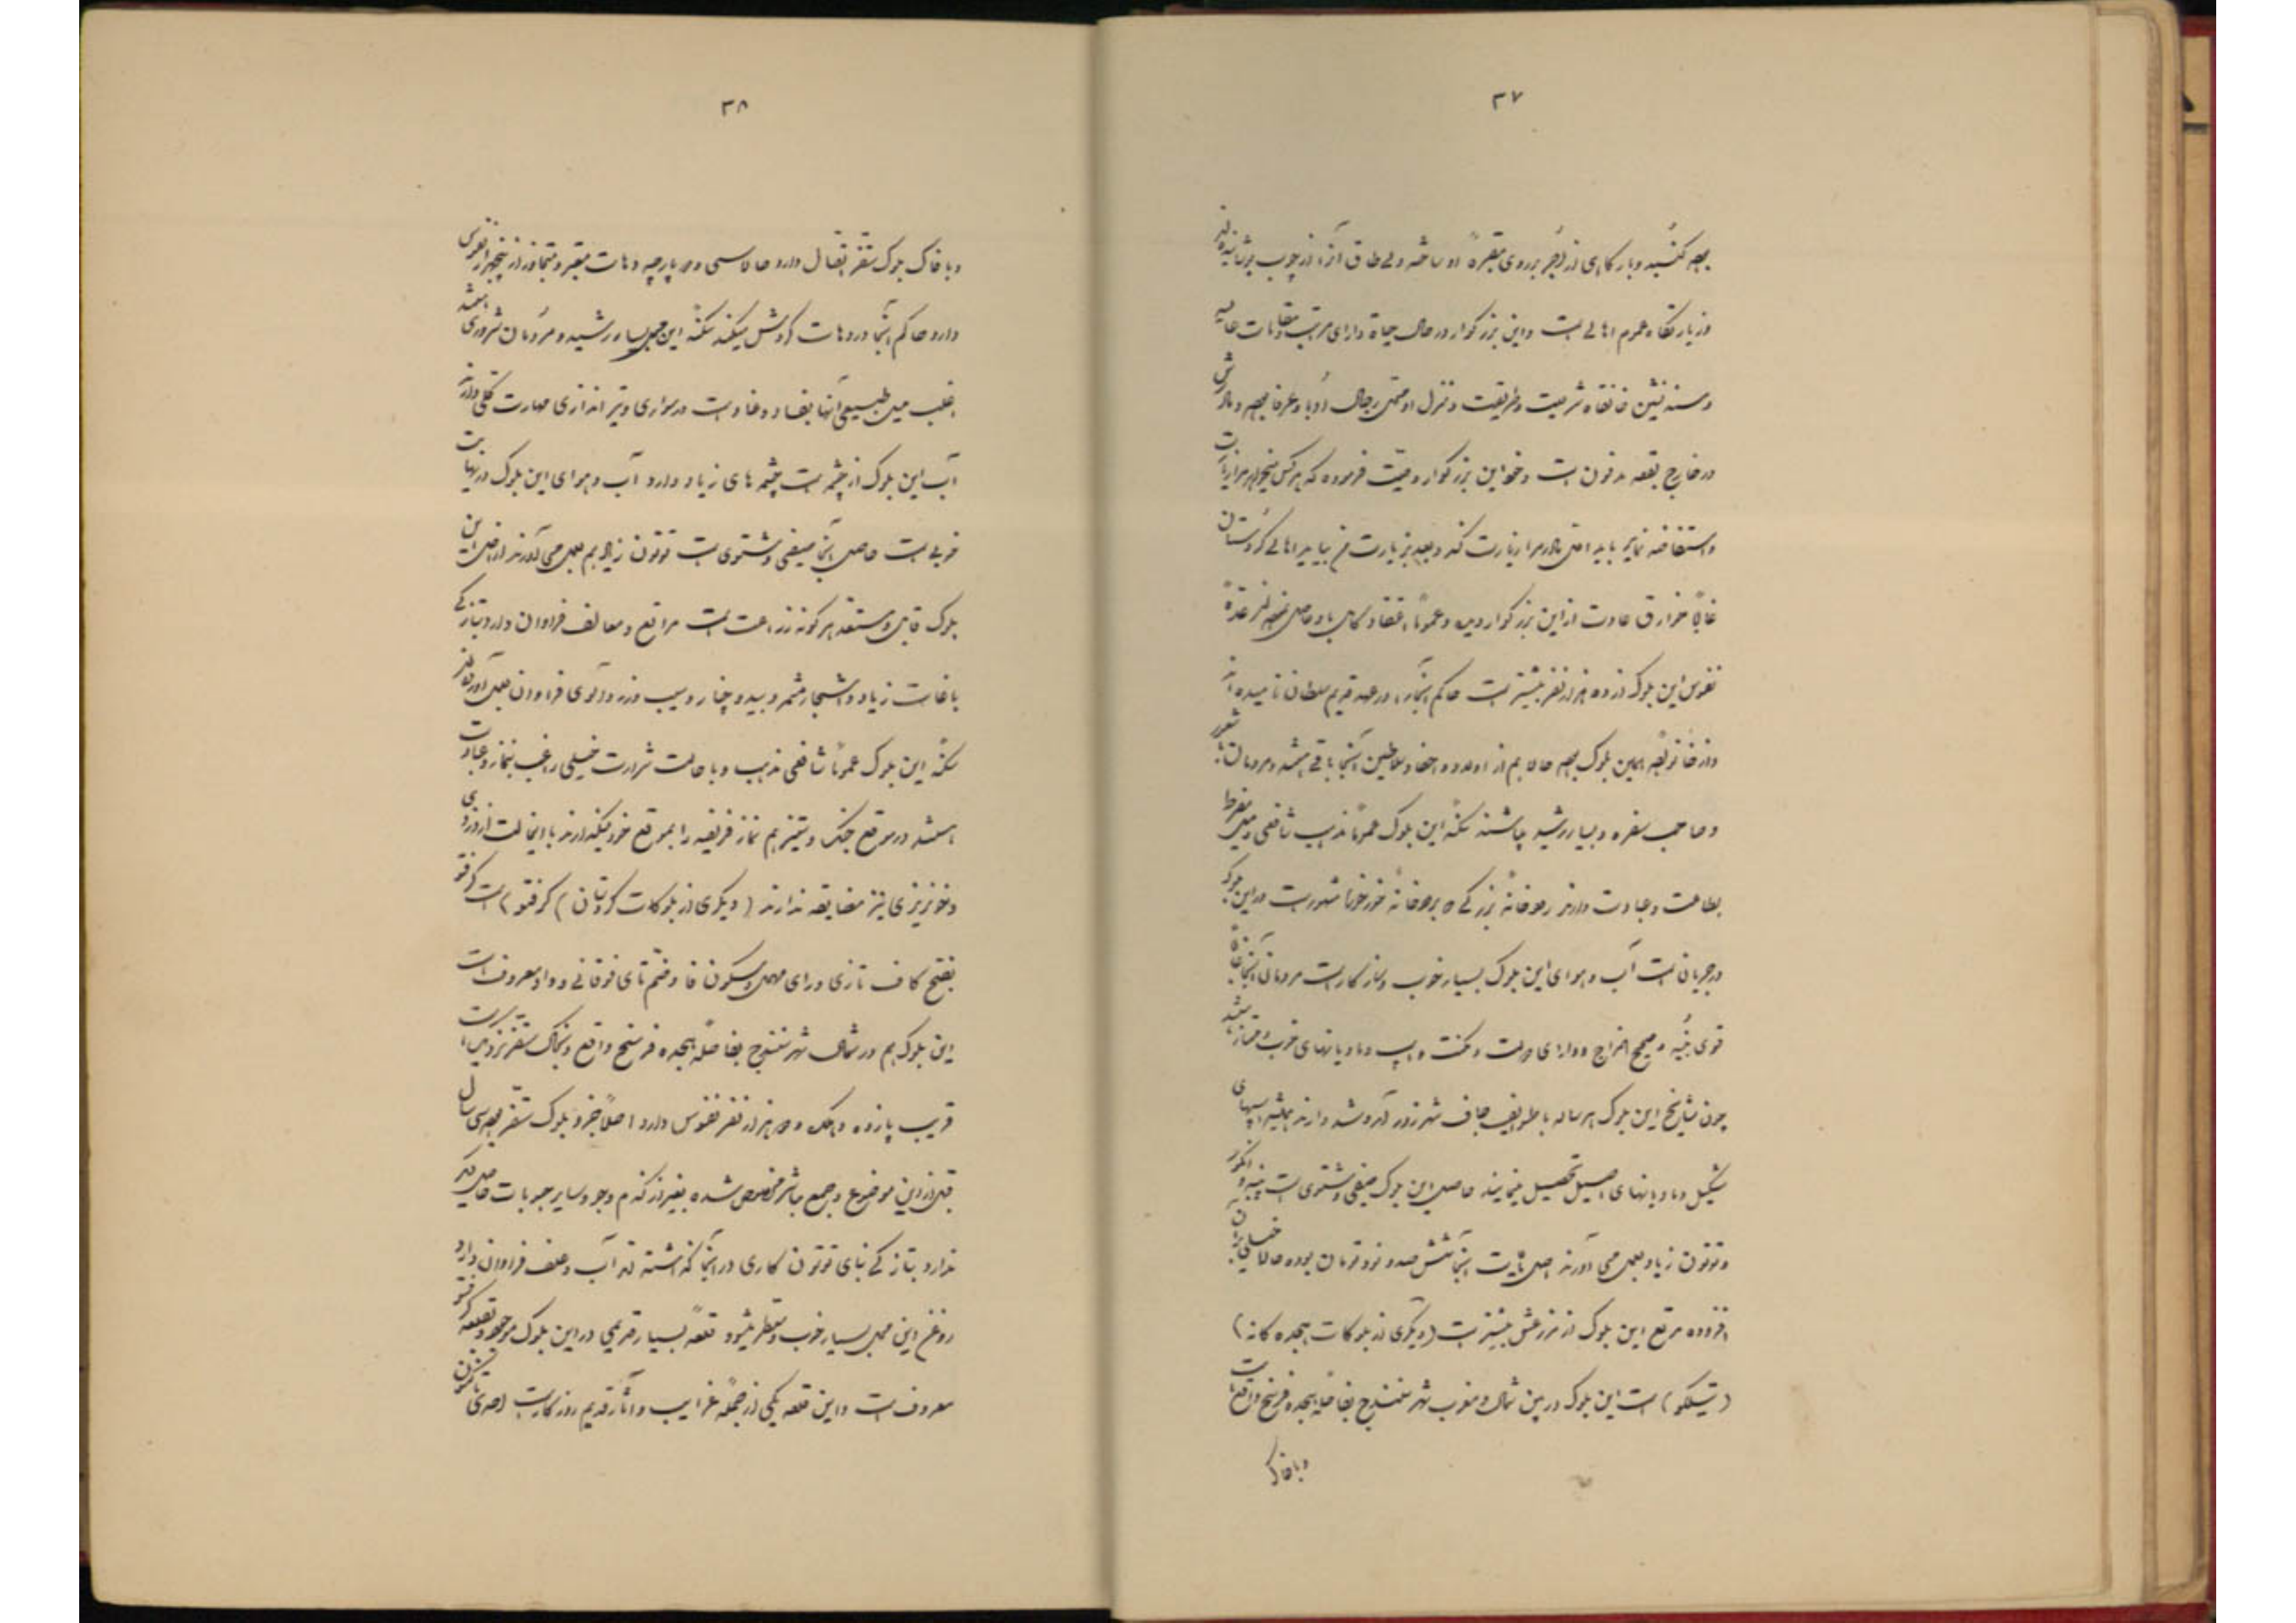 ۳۷
بوده گنبد و بارگاهی از آجر بر روی مقبرهٔ او ساخته ولی طاق آنرا از چوب پوشانیده‌اند
و زیارتگاه عموم اهالی است و این بزرگوار در حال حیاة دارای مراتب و مقامات عالیه
و مسندنشین خانقاه شریعت و طریقت و منزل او مجمع رجال و ادبا و عرفا بوده و مادرش
در خارج بقعه مدفون است و خود این بزرگوار وصیت فرموده که هر کس میخواهد مرا زیارت
و استفاضه نماید باید اول مادر مرا زیارت کند و بعد بزیارت من بیاید اهالی کردستان
غالباً خوارق عادت از این بزرگوار دیده و عموماً اعتقاد کامل باو حاصل نموده‌اند عدهٔ
نفوس این بلوک از ده هزار نفر بیشتر است حاکم آنجا را در عهد قدیم سلطان نامیده‌اند
و از خانواده همین بلوک بوده حالا هم از اولاد و احفاد سلاطین آنجا باقی هستند و مردمان با شعور
و صاحب سفره و بسیار رشید میباشند سکنهٔ این بلوک عموماً مذهب شافعی و میل مفرط
بطاعت و عبادت دارند رودخانهٔ بزرگی که برودخانهٔ خورخوره مشهور است در این بلوک
در جریان است آب و هوای این بلوک بسیار خوب و سازگار است مردمان آنجا غالباً
قوی بنیه و صحیح المزاج و دارای دولت و مکنت و اسب و مادیانهای خوب ممتاز میباشند
چون مشایخ این بلوک هر ساله با طوایف جاف شهرزور آمد و شد دارند همیشه اسبهای
شکیل و مادیانهای اصیل تحصیل مینمایند حاصل این بلوک صیفی و شتوی است پنبه و انگور
و توتون زیاد بعمل می آورند اصل مالیات آنجا ششصد و نود تومان بوده حالا خیلی بر آن
افزوده مرتع این بلوک از مزرعش بیشتر است (دیگری از بلوکات هیجده گانه)
(تیلکو) است این بلوک در بین شمال و مغرب شهر سنندج بفاصله هیجده فرسخ واقع است
و با خاک
۳۸
و با خاک بلوک سقز اتصال دارد حالا سی و دو پارچه دهات معتبر و متجاوز از پنجهزار نفوس
دارد حاکم آنجا در دهات گردش میکند سکنهٔ این محل بسیار رشید و مردمان شروری هستند
اغلب میل طبیعی آنها بفساد و عناد است در سواری و تیراندازی مهارت کلی دارند
آب این بلوک از چشمه است چشمه های زیاد دارد آب و هوای این بلوک در نهایت
خوبی است حاصل آنجا صیفی و شتوی است توتون زیاد هم بعمل می آورند اراضی این
بلوک قابل و مستعد هر گونه زراعت است مراتع و معالف فراوان دارد بتازگی
باغات زیاد و اشجار مثمر و بید و چنار و سیب و زردآلوی فراوان بعمل آورده‌اند
سکنهٔ این بلوک عموماً شافعی مذهب و با حالت شرارت خیلی راغب بنماز و عبادت
هستند در موقع جنگ و ستیز هم نماز فریضه را بموقع خود میگذارند با اینحالت از دزدی
و خونریزی نیز مضایقه ندارند (دیگری از بلوکات کردستان) (کرفتو) است کرفتو
بفتح کاف تازی و رای مهمل و سکون فا و ضم تای فوقانی و واو معروف است
این بلوک هم در شمال شهر سنندج بفاصلهٔ هیجده فرسخ واقع و بخاک سقز نزدیکتر است
قریب پانزده دهکده و دو هزار نفر نفوس دارد اصلاً جزو بلوک سقز بوده سی سال
قبل از این موضوع و جمع مباشر مخصوص شده بغیر از گندم و جو و سایر حبوبات حاصل دیگر
ندارد بتازگی بنای توتون کاری در آنجا گذاشته‌اند آب و علف فراوان دارد
روغن این محل بسیار خوب و معطر میشود قلعه بسیار قدیمی در این بلوک موجود و بقلعه کرفتو
معروف است و این قلعه یکی از جملهٔ غرایب و آثار قدیم روزگار است احدی تاکنون